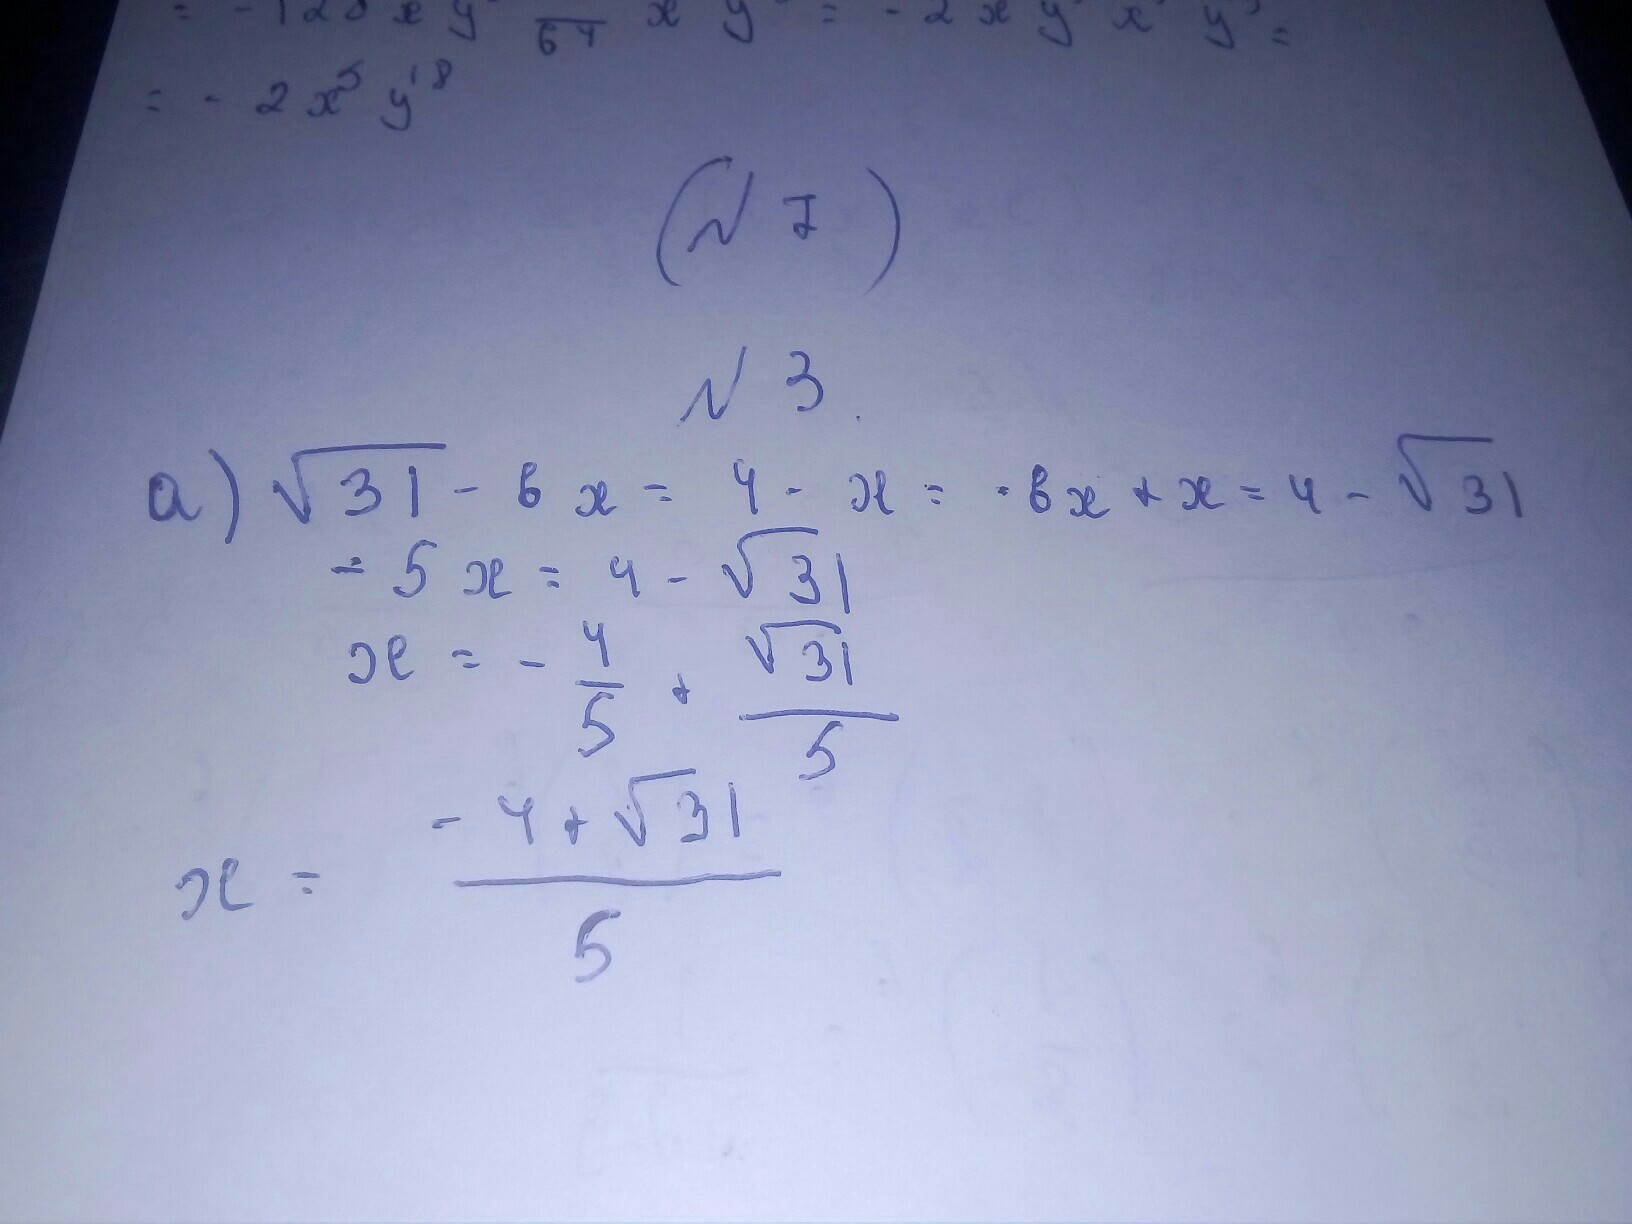 = - 128 x y 64 x y = - 2 x y x y =
= - 2 x⁵ y¹⁸
(N 7)
N 3.
а) √31 - 6x = 4 - x = -6x + x = 4 - √31
- 5x = 4 - √31
x = - 4/5 + √31/5
x = (-4 + √31)/5